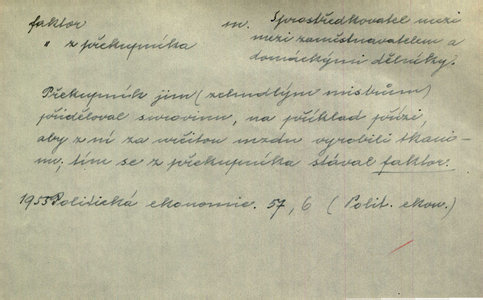 faktor m. Zprostředkovatel mezi
" z překupníka mezi zaměstnavatelem a
domáckými dělníky.
Překupník jim (zchudlým mistrům)
přiděloval surovinu, na příklad přízi,
aby z ní za určitou mzdu vyrobili tkani-
nu, tím se z překupníka stával faktor.
1953 Politická ekonomie. 57, 6 (Polit. ekon.)